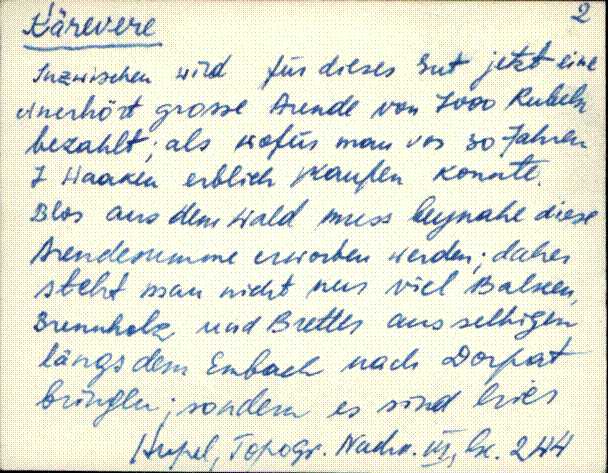 Kärevere
2
Inzwischen wird für dieses Gut jetzt eine
unerhört grosse Arende von 7000 Rubeln
bezahlt; als wofür man vor 30 Jahren
7 Haaken erblich kaufen konnte.
Blos aus dem Wald muss beynahe diese
Arendesumme erworben werden; daher
steht man nicht nur viel Balken,
Brennholz und Bretter aus selbigen
längs dem Embach nach Dorpat
bringen; sondern es sind hier
Hupel, Topogr. Nachr. III, lk. 244